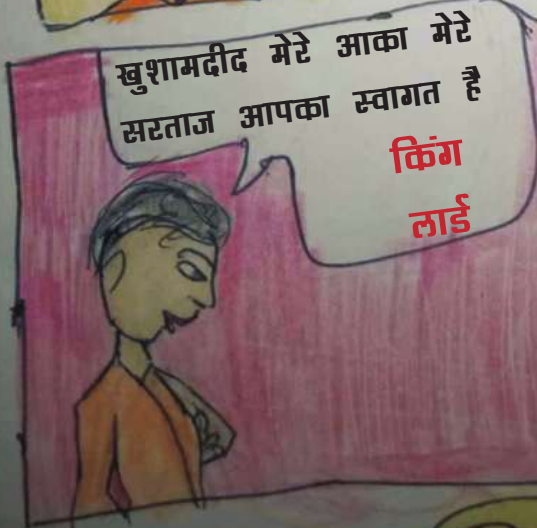 खुशामदीद मेरे आका मेरे
सरताज आपका स्वागत है
किंग
लार्ड